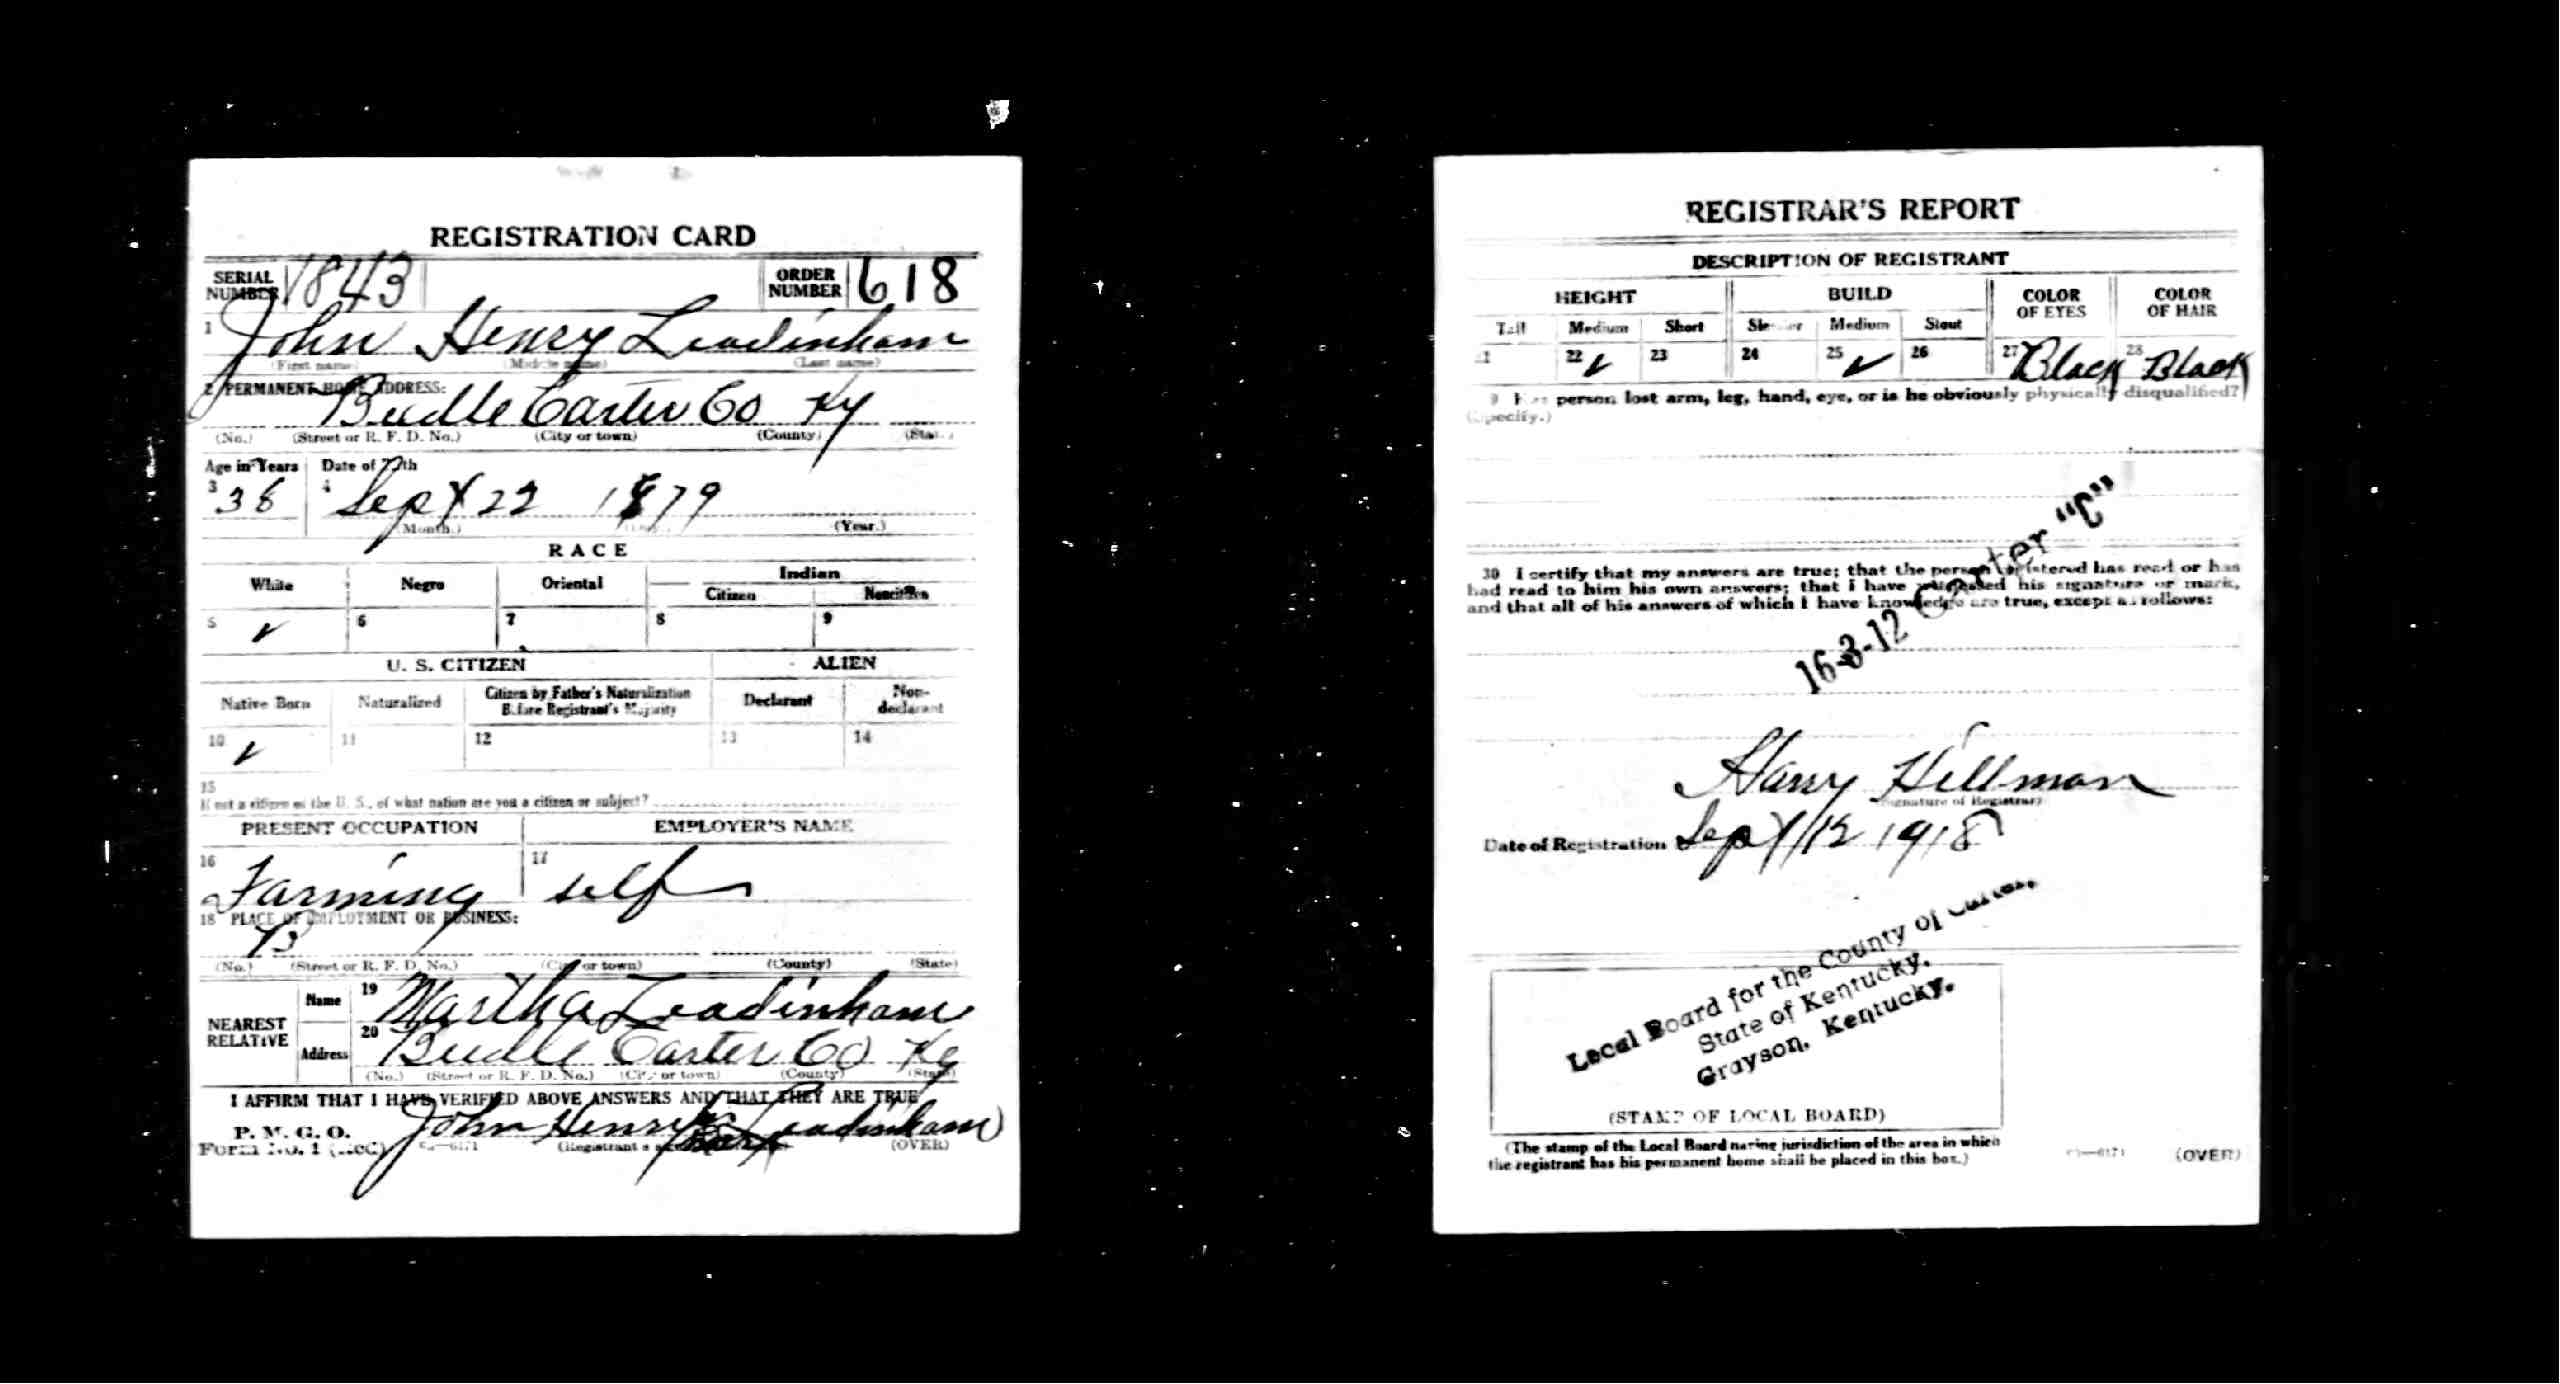 REGISTRATION CARD
SERIAL NUMBER 1843 ORDER NUMBER 618
1 John Henry Leadinham
(First name) (Middle name) (Last name)
2 PERMANENT HOME ADDRESS:
Beedle Carter Co Ky
(No.) (Street or R. F. D. No.) (City or town) (County) (State)
Age in Years Date of Birth
3 38 4 Sept 22 1879
(Month.) (Year.)
RACE
White Negro Oriental Indian
Citizen Noncitizen
5 ✓ 6 7 8 9
U. S. CITIZEN ALIEN
Native Born Naturalized Citizen by Father's Naturalization Before Registrant's Majority Declarant Non-declarant
10 ✓ 11 12 13 14
15
If not a citizen of the U. S., of what nation are you a citizen or subject?
PRESENT OCCUPATION EMPLOYER'S NAME
16 Farming 17 self
18 PLACE OF EMPLOYMENT OR BUSINESS:
B
(No.) (Street or R. F. D. No.) (City or town) (County) (State)
NEAREST RELATIVE Name 19 Martha Leadinham
Address 20 Beedle Carter Co Ky
(No.) (Street or R. F. D. No.) (City or town) (County) (State)
I AFFIRM THAT I HAVE VERIFIED ABOVE ANSWERS AND THAT THEY ARE TRUE
P. M. G. O.
Form No. 1 (Red) John Henry Leadinham
(OVER)
REGISTRAR'S REPORT
DESCRIPTION OF REGISTRANT
HEIGHT BUILD COLOR OF EYES COLOR OF HAIR
Tall Medium Short Slender Medium Stout
21 22 ✓ 23 24 25 ✓ 26 27 Black 28 Black
29 Has person lost arm, leg, hand, eye, or is he obviously physically disqualified?
(Specify.)
16-3-12 Carter "C"
30 I certify that my answers are true; that the person registered has read or has
had read to him his own answers; that I have witnessed his signature or mark,
and that all of his answers of which I have knowledge are true, except as follows:
Harry Hillman
(Signature of Registrar)
Date of Registration Sept 12 1918
Local Board for the County of Carter,
State of Kentucky,
Grayson, Kentucky.
(STAMP OF LOCAL BOARD)
(The stamp of the Local Board having jurisdiction of the area in which
the registrant has his permanent home shall be placed in this box.)
(OVER)